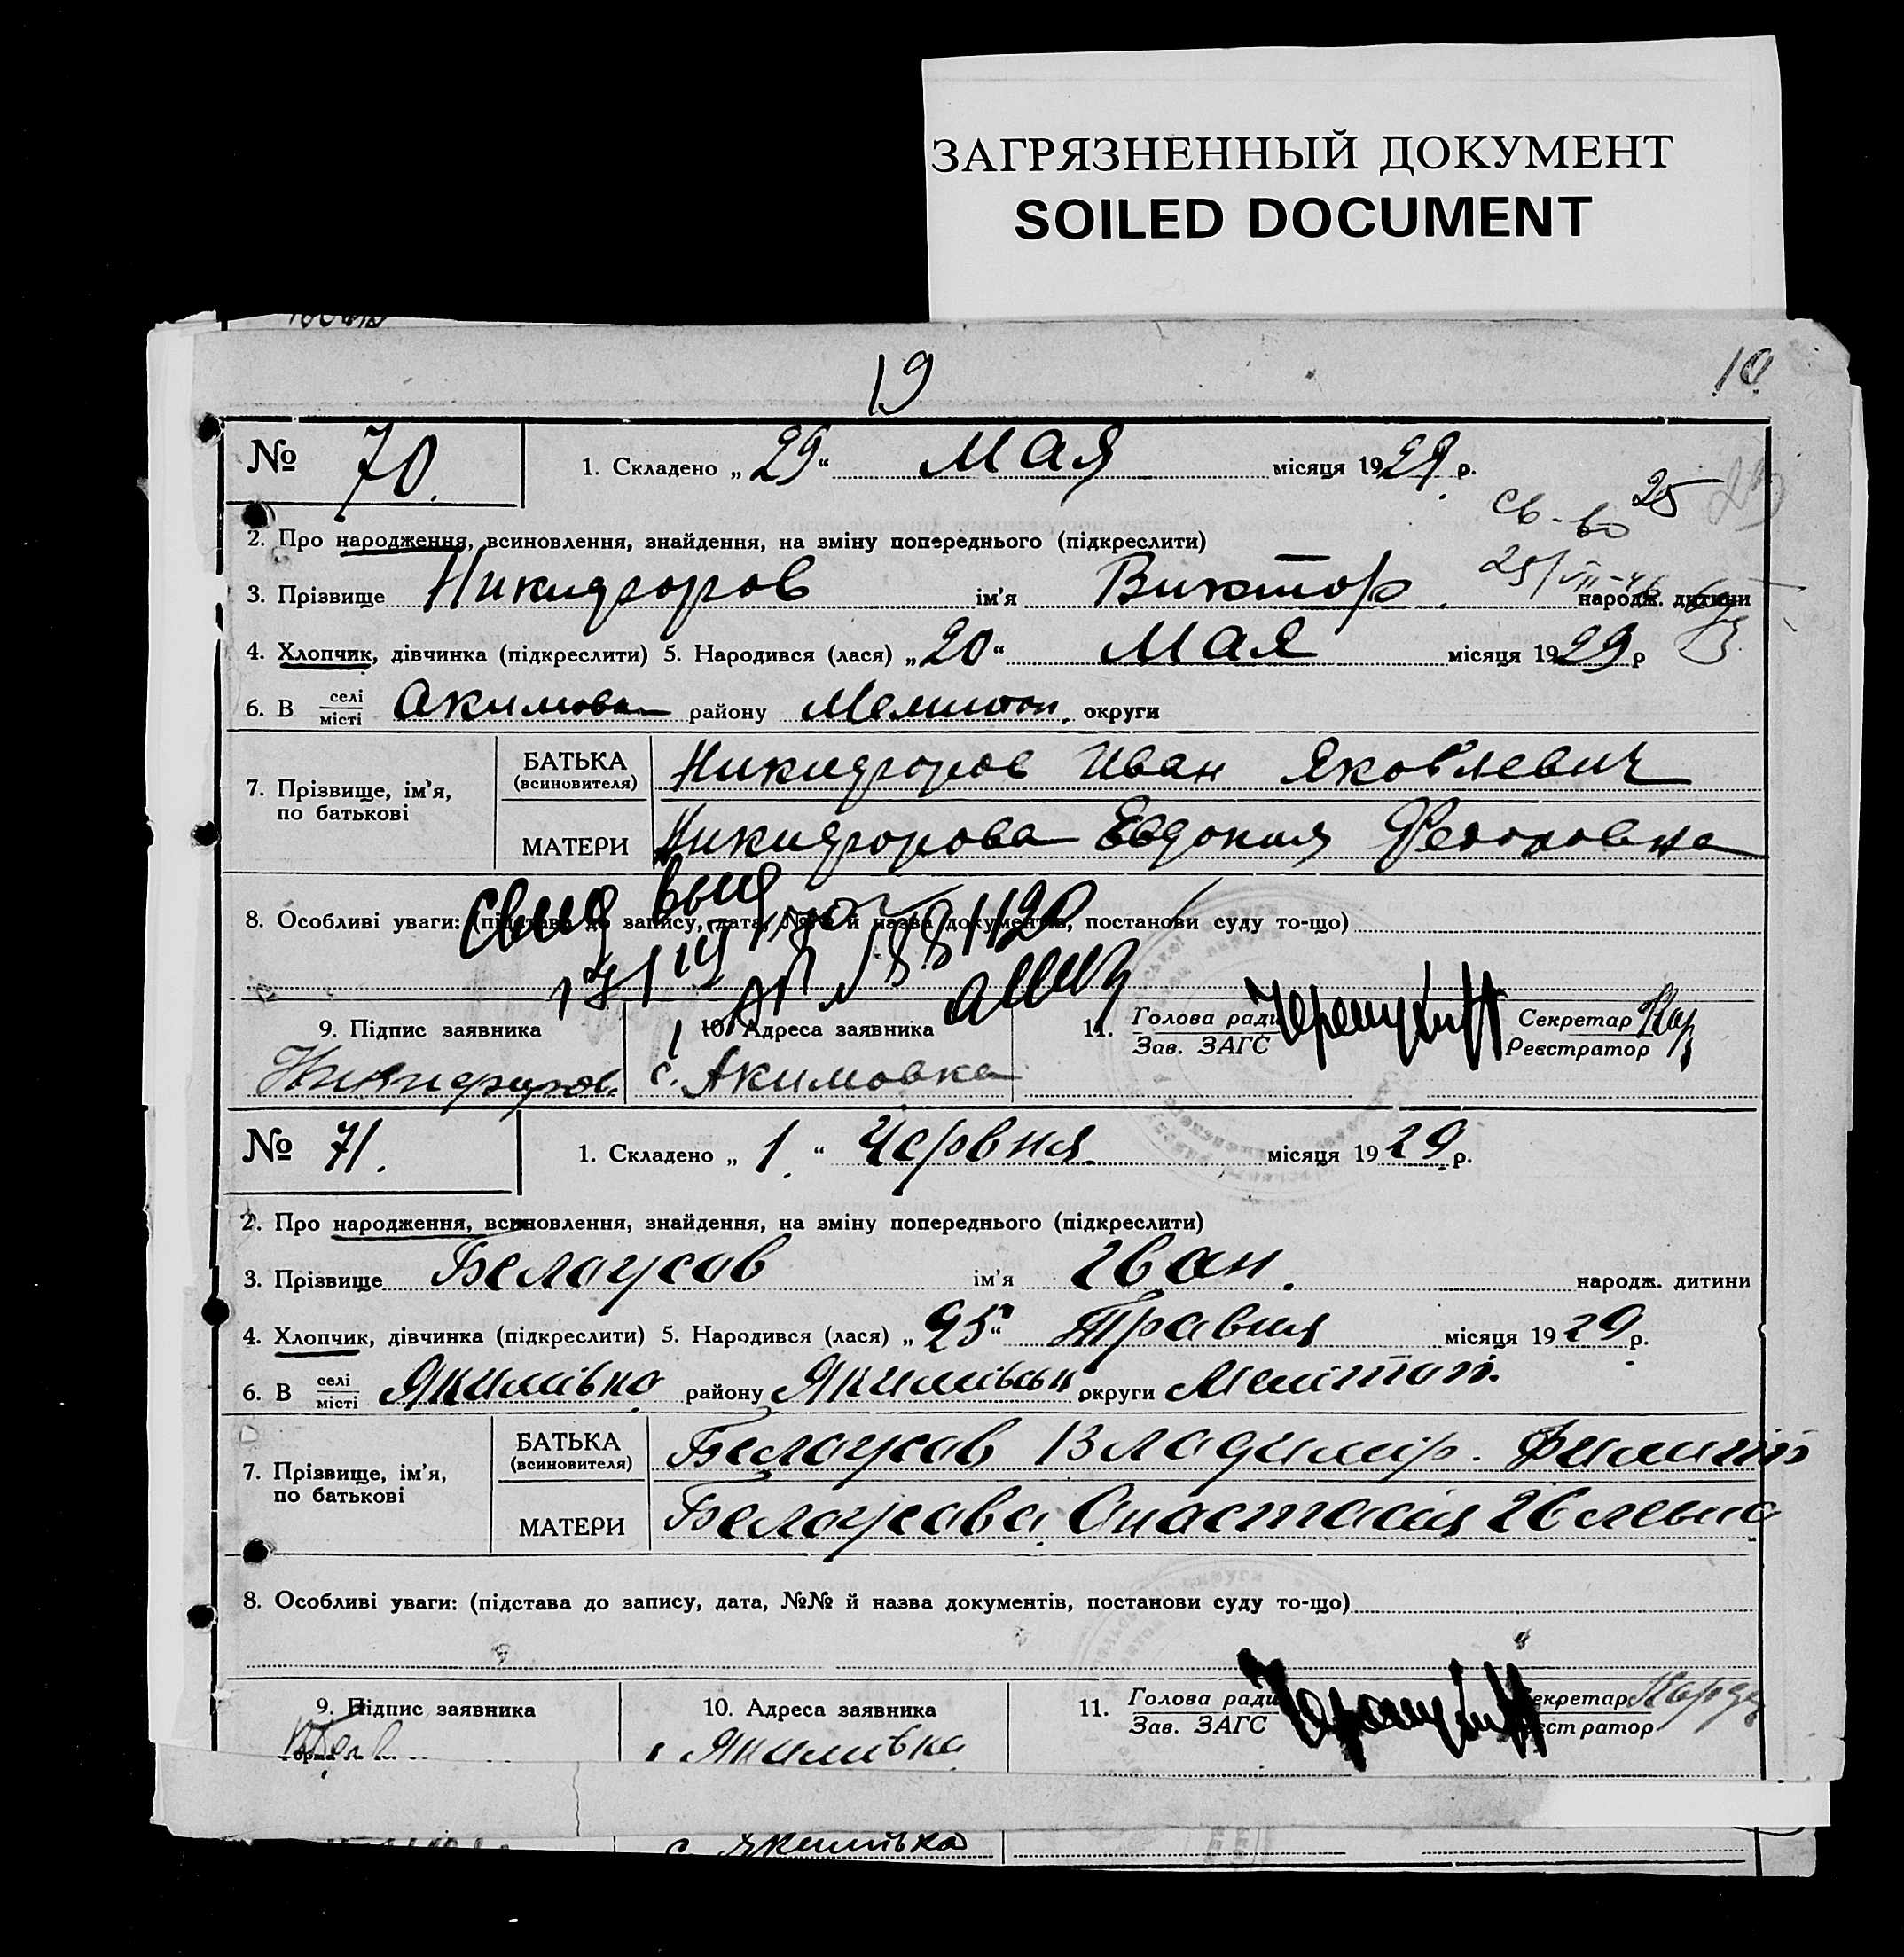 ЗАГРЯЗНЕННЫЙ ДОКУМЕНТ
SOILED DOCUMENT
19
№ 70. 1. Складено „29“ Мая місяця 1929 р.
св-во 25
2. Про народження, всиновлення, знайдення, на зміну попереднього (підкреслити)
3. Прізвище Никифоров ім’я Виктор народж. дитини
4. Хлопчик, дівчинка (підкреслити) 5. Народився (лася) „20“ Мая місяця 1929 р
6. В селі місті Акимовка району Мелитоп. округи
7. Прізвище, ім’я, по батькові
БАТЬКА (всиновителя) Никифоров Иван Яковлевич
МАТЕРИ Никифорова Евдокия Федоровна
8. Особливі уваги: (підстава до запису, дата, №№ й назва документів, постанови суду то-що)
9. Підпис заявника 10. Адреса заявника 11. Голова ради Зав. ЗАГС Секретар Реєстратор
Никифоров с. Акимовка
№ 71. 1. Складено „1.“ Червня місяця 1929 р.
2. Про народження, всиновлення, знайдення, на зміну попереднього (підкреслити)
3. Прізвище Белоусов ім’я Іван. народж. дитини
4. Хлопчик, дівчинка (підкреслити) 5. Народився (лася) „25“ Травня місяця 1929 р.
6. В селі місті Якимівка району Якимівськ округи Мелітоп.
7. Прізвище, ім’я, по батькові
БАТЬКА (всиновителя) Белоусов Владимір. Филип
МАТЕРИ Белоусова Анастасія
8. Особливі уваги: (підстава до запису, дата, №№ й назва документів, постанови суду то-що)
9. Підпис заявника 10. Адреса заявника 11. Голова ради Зав. ЗАГС Секретар Реєстратор
Якимівка
с. Якимівка